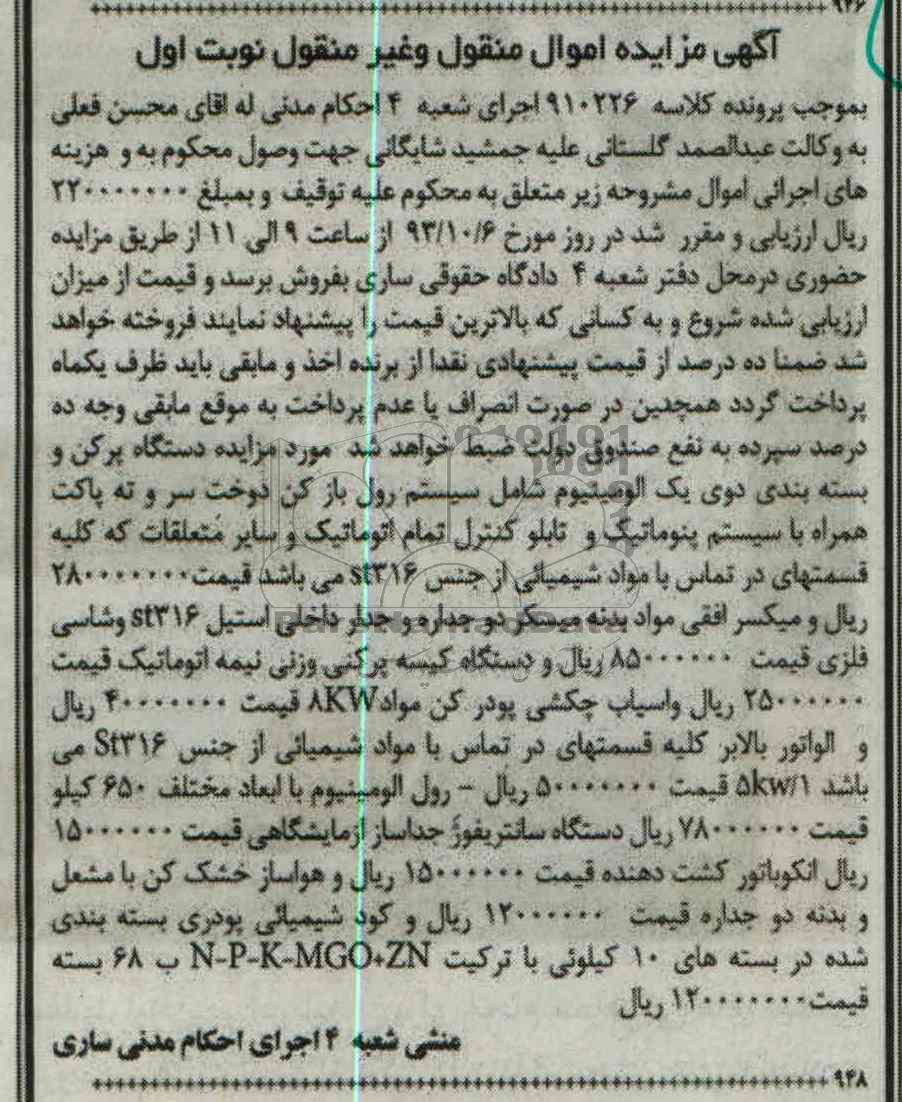 ۹۴۶
آگهی مزایده اموال منقول وغیر منقول نوبت اول
بموجب پرونده کلاسه ۹۱۰۲۲۶ اجرای شعبه ۴ احکام مدنی له اقای محسن فعلی
به وکالت عبدالصمد گلستانی علیه جمشید شایگانی جهت وصول محکوم به و هزینه
های اجرائی اموال مشروحه زیر متعلق به محکوم علیه توقیف و بمبلغ ۲۲۰۰۰۰۰۰۰۰
ریال ارزیابی و مقرر شد در روز مورخ ۹۳/۱۰/۶ از ساعت ۹ الی ۱۱ از طریق مزایده
حضوری درمحل دفتر شعبه ۴ دادگاه حقوقی ساری بفروش برسد و قیمت از میزان
ارزیابی شده شروع و به کسانی که بالاترین قیمت را پیشنهاد نمایند فروخته خواهد
شد ضمنا ده درصد از قیمت پیشنهادی نقدا از برنده اخذ و مابقی باید ظرف یکماه
پرداخت گردد همچنین در صورت انصراف یا عدم پرداخت به موقع مابقی وجه ده
درصد سپرده به نفع صندوق دولت ضبط خواهد شد مورد مزایده دستگاه پرکن و
بسته بندی دوی یک الومینیوم شامل سیستم رول باز کن دوخت سر و ته پاکت
همراه با سیستم پنوماتیک و تابلو کنترل تمام اتوماتیک و سایر متعلقات که کلیه
قسمتهای در تماس با مواد شیمیائی از جنس st۳۱۶ می باشد قیمت ۲۸۰۰۰۰۰۰۰
ریال و میکسر افقی مواد بدنه میسکر دو جداره و جدار داخلی استیل st۳۱۶ وشاسی
فلزی قیمت ۸۵۰۰۰۰۰۰ ریال و دستگاه کیسه پرکنی وزنی نیمه اتوماتیک قیمت
۲۵۰۰۰۰۰۰ ریال واسیاب چکشی پودر کن مواد ۸KW قیمت ۴۰۰۰۰۰۰۰ ریال
و الواتور بالابر کلیه قسمتهای در تماس با مواد شیمیائی از جنس St۳۱۶ می
باشد ۵kw/۱ قیمت ۵۰۰۰۰۰۰۰ ریال – رول الومینیوم با ابعاد مختلف ۶۵۰ کیلو
قیمت ۷۸۰۰۰۰۰۰ ریال دستگاه سانتریفوژ جداساز ازمایشگاهی قیمت ۱۵۰۰۰۰۰۰
ریال انکوباتور کشت دهنده قیمت ۱۵۰۰۰۰۰۰ ریال و هواساز خشک کن با مشعل
و بدنه دو جداره قیمت ۱۲۰۰۰۰۰۰ ریال و کود شیمیائی پودری بسته بندی
شده در بسته های ۱۰ کیلوئی با ترکیت N-P-K-MGO+ZN ب ۶۸ بسته
قیمت ۱۲۰۰۰۰۰۰۰ ریال
منشی شعبه ۴ اجرای احکام مدنی ساری
۹۴۸